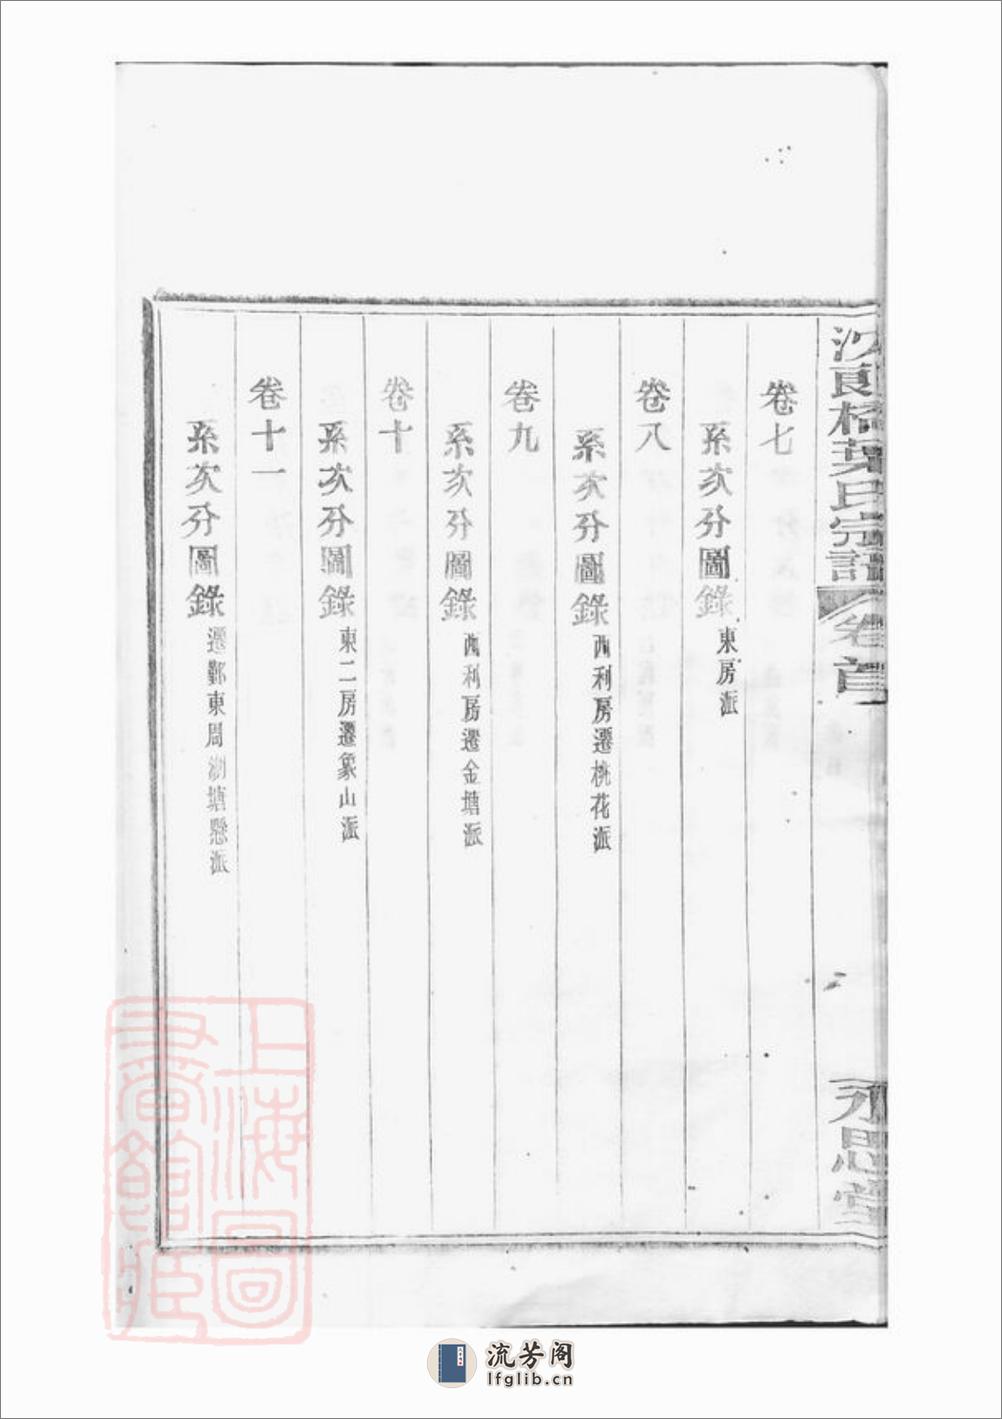 沙艮橋葉氏宗譜 卷首 永思堂
卷七
系次分圖錄 東房派
卷八
系次分圖錄 西利房遷桃花派
卷九
系次分圖錄 西利房遷金塘派
卷十
系次分圖錄 東二房遷象山派
卷十一
系次分圖錄 遷鄞東周塘懸派
上海圖書館藏
流芳阁
lfglib.cn